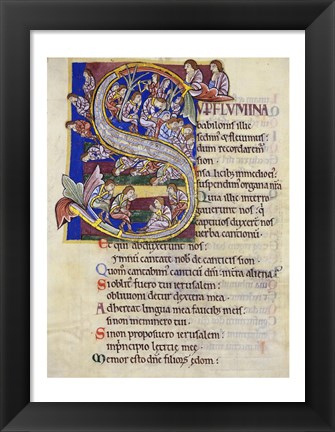 SUPER FLUMINA
babilonis illic
sedim' & fleuimus:
dum recordarem'
sion
In salicib; in medio ei':
suspendim' organa nra
Quia illic interro
gauerunt nos: q
captiuos duxer' nos
uerba cantionu
Et qui abduxerunt nos:
ymnu cantate nob de canticis sion
Quom cantabim' canticu dni: in terra aliena?
Si oblit' fuero tui ierusalem:
obliuioni detur dextera mea
Adhereat lingua mea faucib; meis:
si non meminero tui
Si non proposuero ierusalem:
in principio leticie mee
Memor esto dne filioru edom: